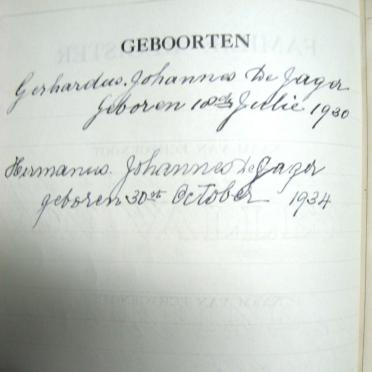 GEBOORTEN
Gerhardus Johannes De Jager
Geboren 18de Julie 1930
Hermanus Johannes De Jager
geboren 30ste October 1934